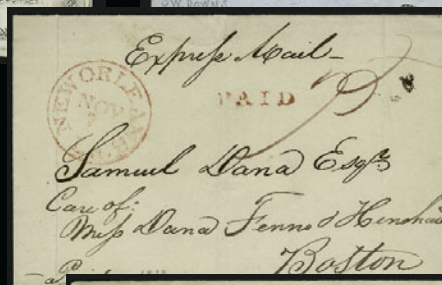 Express Mail
NEW ORLEANS
NOV
PAID
Samuel Dana Esqr
Care of:
Mess Dana Fenno & Henshaw
Boston